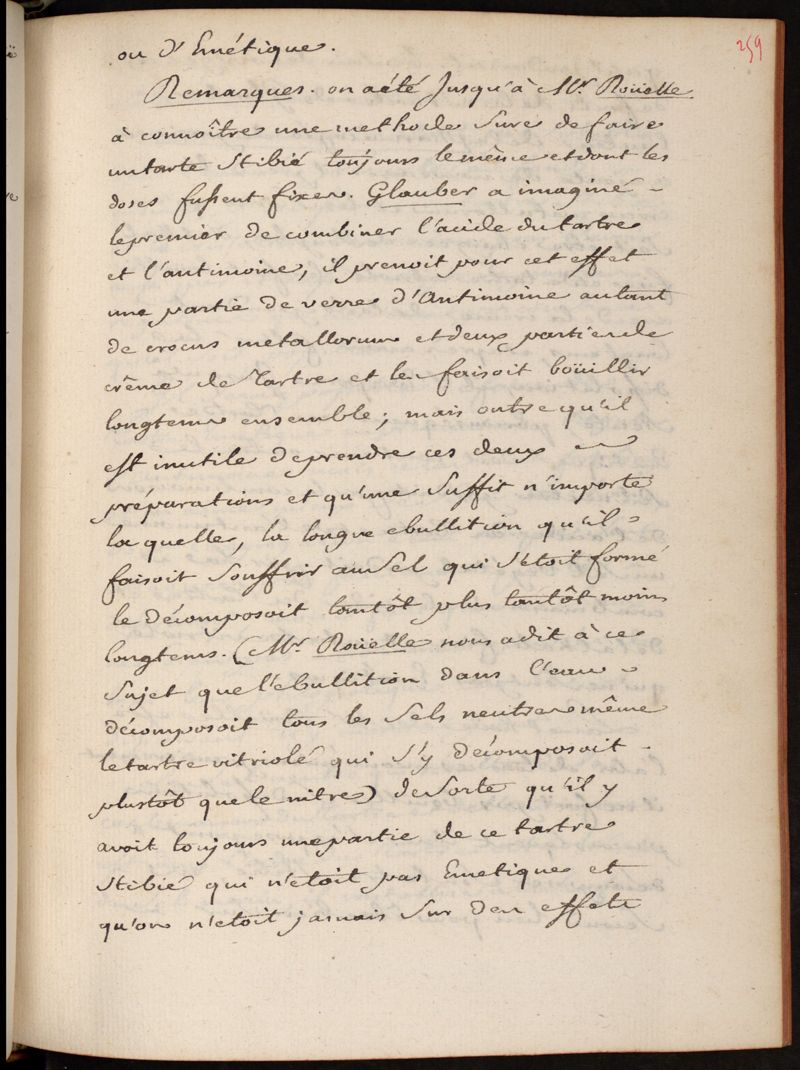 259
ou d'Emétique.
Remarques. on a été Jusqu'à Mr. Roüelle
à connoître une methode sure de faire
un tartre Stibié toujours le même et dont les
doses fussent fixes. Glauber a imaginé -
le premier de combiner l'acide du tartre
et l'antimoine, il prenoit pour cet effet
une partie de verre d'Antimoine autant
de crocus metallorum et deux parties de
crême de Tartre et les faisoit boüillir
longtems ensemble; mais outre qu'il
est inutile de prendre ces deux
préparations et qu'une suffit n'importe
la quelle, la longue ebullition qu'il
faisoit souffrir au Sel qui s'étoit formé
le décomposoit tantôt plus tantôt moins
longtems. (Mr. Roüelle nous a dit à ce
sujet que l'ebullition dans l'eau
décomposoit tous les Sels neutres même
le tartre vitriolé qui s'y décomposoit -
plustôt que le nitre) de sorte qu'il y
avoit toujours une partie de ce tartre
Stibié qui n'etoit pas Emetique et
qu'on n'etoit jamais Sur des effets